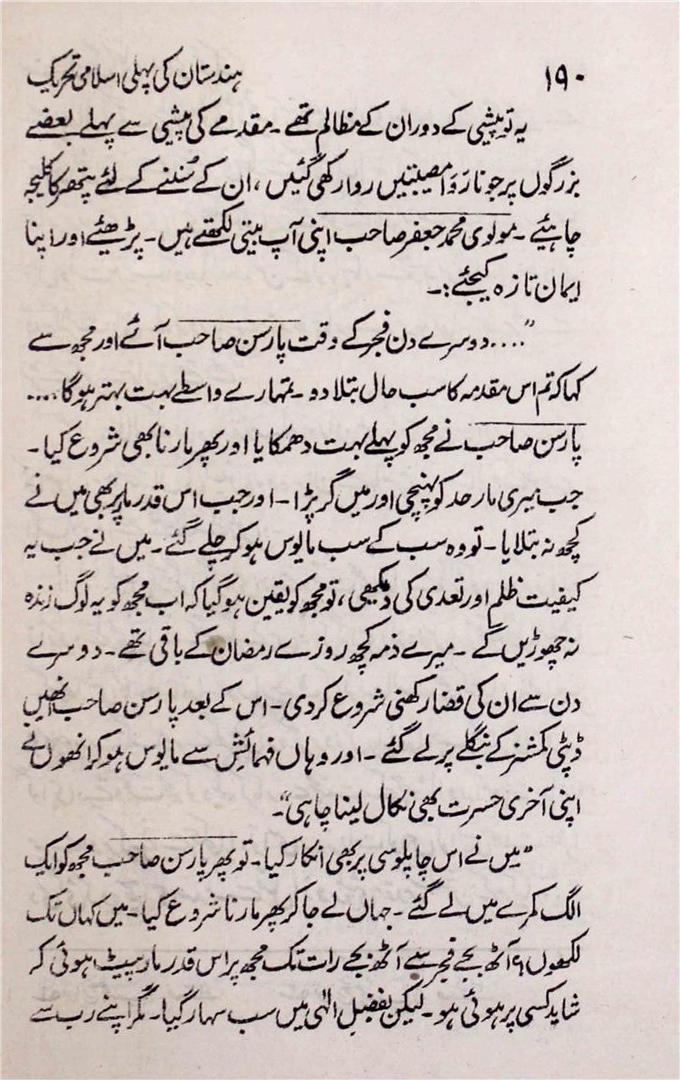 ۱۹۰
ہندستان کی پہلی اسلامی تحریک
یہ تو پیشی کے دوران کے مظالم تھے ۔ مقدمے کی پیشی سے پہلے بعضے
بزرگوں پر جو ناروَا مصیبتیں روا رکھی گئیں ، ان کے سُننے کے لئے پتھر کا کلیجہ
چاہیئے ۔ مولوی محمد جعفر صاحب اپنی آپ بیتی لکھتے ہیں ۔ پڑھیئے اور اپنا
ایمان تازہ کیجئے :۔
”.... دوسرے دن فجر کے وقت پارسن صاحب آئے اور مجھ سے
کہا کہ تم اس مقدمہ کا سب حال بتلا دو ۔ تمہارے واسطے بہت بہتر ہوگا ....
پارسن صاحب نے مجھ کو پہلے بہت دھمکایا اور پھر مارنا بھی شروع کیا ۔
جب میری مار حد کو پہنچی اور میں گر پڑا ۔ اور جب اس قدر مار پر بھی میں نے
کچھ نہ بتلایا ۔ تو وہ سب کے سب مایوس ہو کر چلے گئے ۔ میں نے جب یہ
کیفیت ظلم اور تعدی کی دیکھی ، تو مجھ کو یقین ہو گیا کہ اب مجھ کو یہ لوگ زندہ
نہ چھوڑیں گے ۔ میرے ذمہ کچھ روزے رمضان کے باقی تھے ۔ دوسرے
دن سے ان کی قضا رکھنی شروع کر دی ۔ اس کے بعد پارسن صاحب انھیں
ڈپٹی کمشنر کے بنگلے پر لے گئے ۔ اور وہاں فہمائش سے مایوس ہو کر انھوں نے
اپنی آخری حسرت بھی نکال لینا چاہی“۔
”میں نے اس چاپلوسی پر بھی انکار کیا ۔ تو پھر پارسن صاحب مجھ کو ایک
الگ کمرے میں لے گئے ۔ جہاں لے جا کر پھر مارنا شروع کیا ۔ میں کہاں تک
لکھوں ؟ آٹھ بجے فجر سے آٹھ بجے رات تک مجھ پر اس قدر مار پیٹ ہوئی کہ
شاید کسی پر ہوئی ہو ۔ لیکن بفضلِ الٰہی میں سب سہار گیا ۔ مگر اپنے رب سے